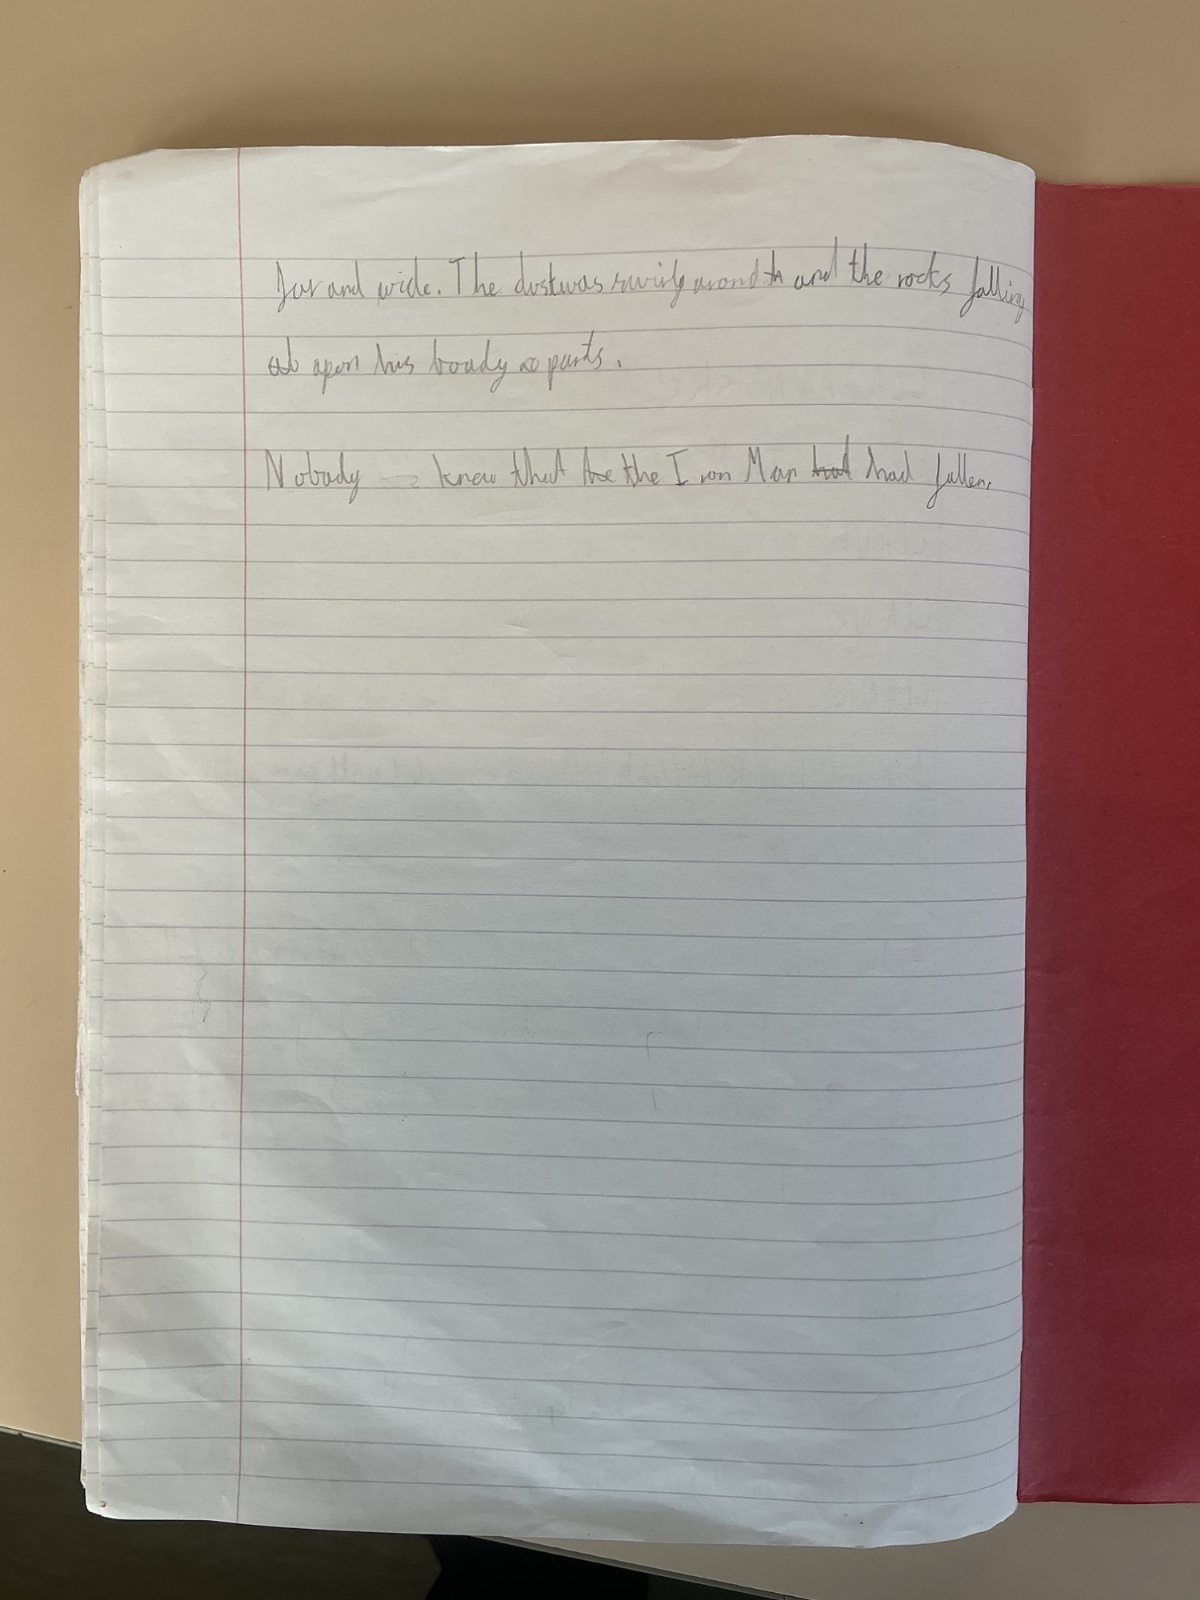 far and wide. The dust was swirily arond th and the rocks falling
apon his boady parts.
Nobody knew that the the Iron Man had had fallen.